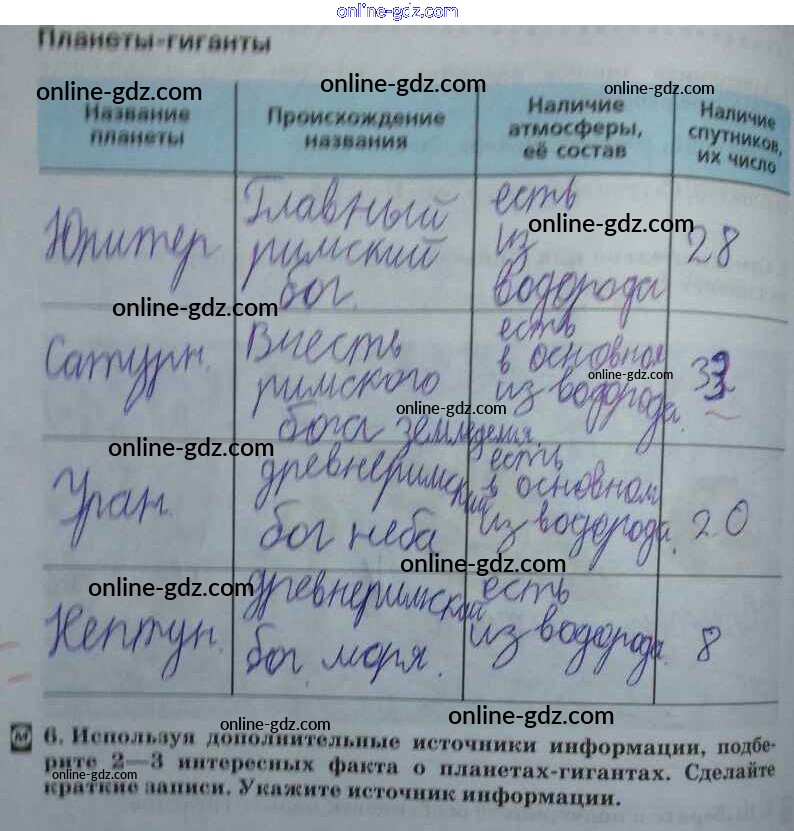 online-gdz.com
Планеты-гиганты
online-gdz.com online-gdz.com online-gdz.com
Название планеты
Происхождение названия
Наличие атмосферы, её состав
Наличие спутников, их число
Юпитер
Главный
римский
бог.
есть
online-gdz.com
из
водорода
28
online-gdz.com
Сатурн.
Вчесть
римского
бога земледелия.
есть
в основном
online-gdz.com
из водорода.
online-gdz.com
online-gdz.com
Уран.
древнеримский
бог неба
есть
в основном
из водорода.
20
online-gdz.com
online-gdz.com
Нептун.
древнеримский
бог моря.
есть
из водорода.
8
online-gdz.com
online-gdz.com
6. Используя дополнительные источники информации, подбе-
рите 2—3 интересных факта о планетах-гигантах. Сделайте
online-gdz.com
краткие записи. Укажите источник информации.